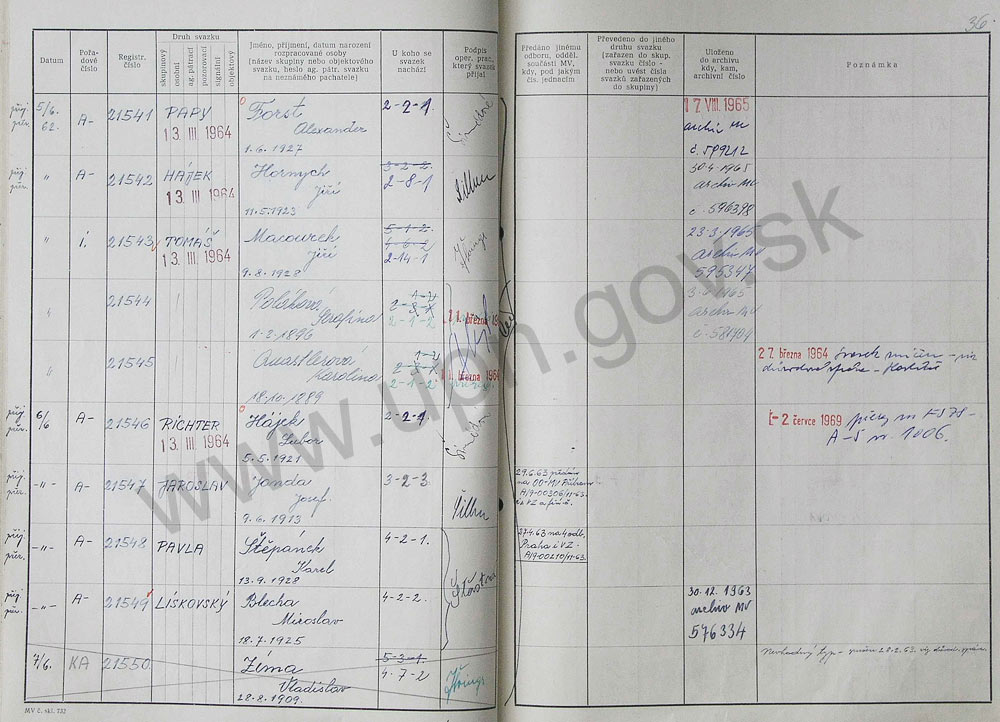 36
Datum
Pořa-
dové
číslo
Registr.
číslo
Druh svazku
skupinový
osobní
ag. pátrací
pozorovací
signální
objektový
Jméno, příjmení, datum narození
rozpracované osoby
(název skupiny nebo objektového
svazku, heslo ag. pátr. svazku
na neznámého pachatele)
U koho se
svazek
nachází
Podpis
oper. prac.,
který svazek
přijal
Předáno jinému
odboru, odděl.
součásti MV,
kdy, pod jakým
čís. jednacím
Převedeno do jiného
druhu svazku
(zařazen do skup.
svazku číslo -
nebo uvést čísla
svazků zařazených
do skupiny)
Uloženo
do archivu
kdy, kam,
archivní číslo
Poznámka
5/6. 62. A- 21541 PAPY Forst 2-2-1.
13. III 1964 Alexander
1.6.1927
17. VIII. 1965
archiv MV
č. 589212
" A- 21542 HÁJEK Hornych 3-2-2.
13. III 1964 Jiří 2-8-1
11.5.1923
30.4.1965
archiv MV
č. 596398
" 1. 21543 TOMÁŠ Macourek 5-1-2
13. III 1964 Jiří 4-6-2
9.8.1928 2-14-1
23.3.1965
archiv MV
595347
" 21544 Poláková
Serafína 2-1-2
1.2.1896
11. března
archiv MV
č. 581904
" 21545 Quastlerová
Karolina 2-1-2
18.10.1889
března 1964
27. března 1964 svazek
6/6 A- 21546 RICHTER Hájek 2-2-1
13. III 1964 Lubor
5.5.1921
2. července 1969
A-5
1006.
-"- A- 21547 JAROSLAV Janda 3-2-3.
Josef.
9.6.1913
29.6.63 předán
na OO-MV Příbram
A/9-00306/11-63.
-"- A- 21548 PAVLA Štěpánek 4-2-1.
Karel
13.9.1928
27.4.63 na 4 odb.
Praha i VZ
A/9-00210/11-63.
-"- A- 21549 LÍSKOVSKÝ Blecha 4-2-2.
Miroslav
18.7.1925
30.12.1963
archiv MV
576334
7/6. KA 21550 Zíma 5-3-1.
Vladislav 4-7-2
28.8.1909.
Nevhodný typ -
MV č. skl. 752
www.upn.gov.sk